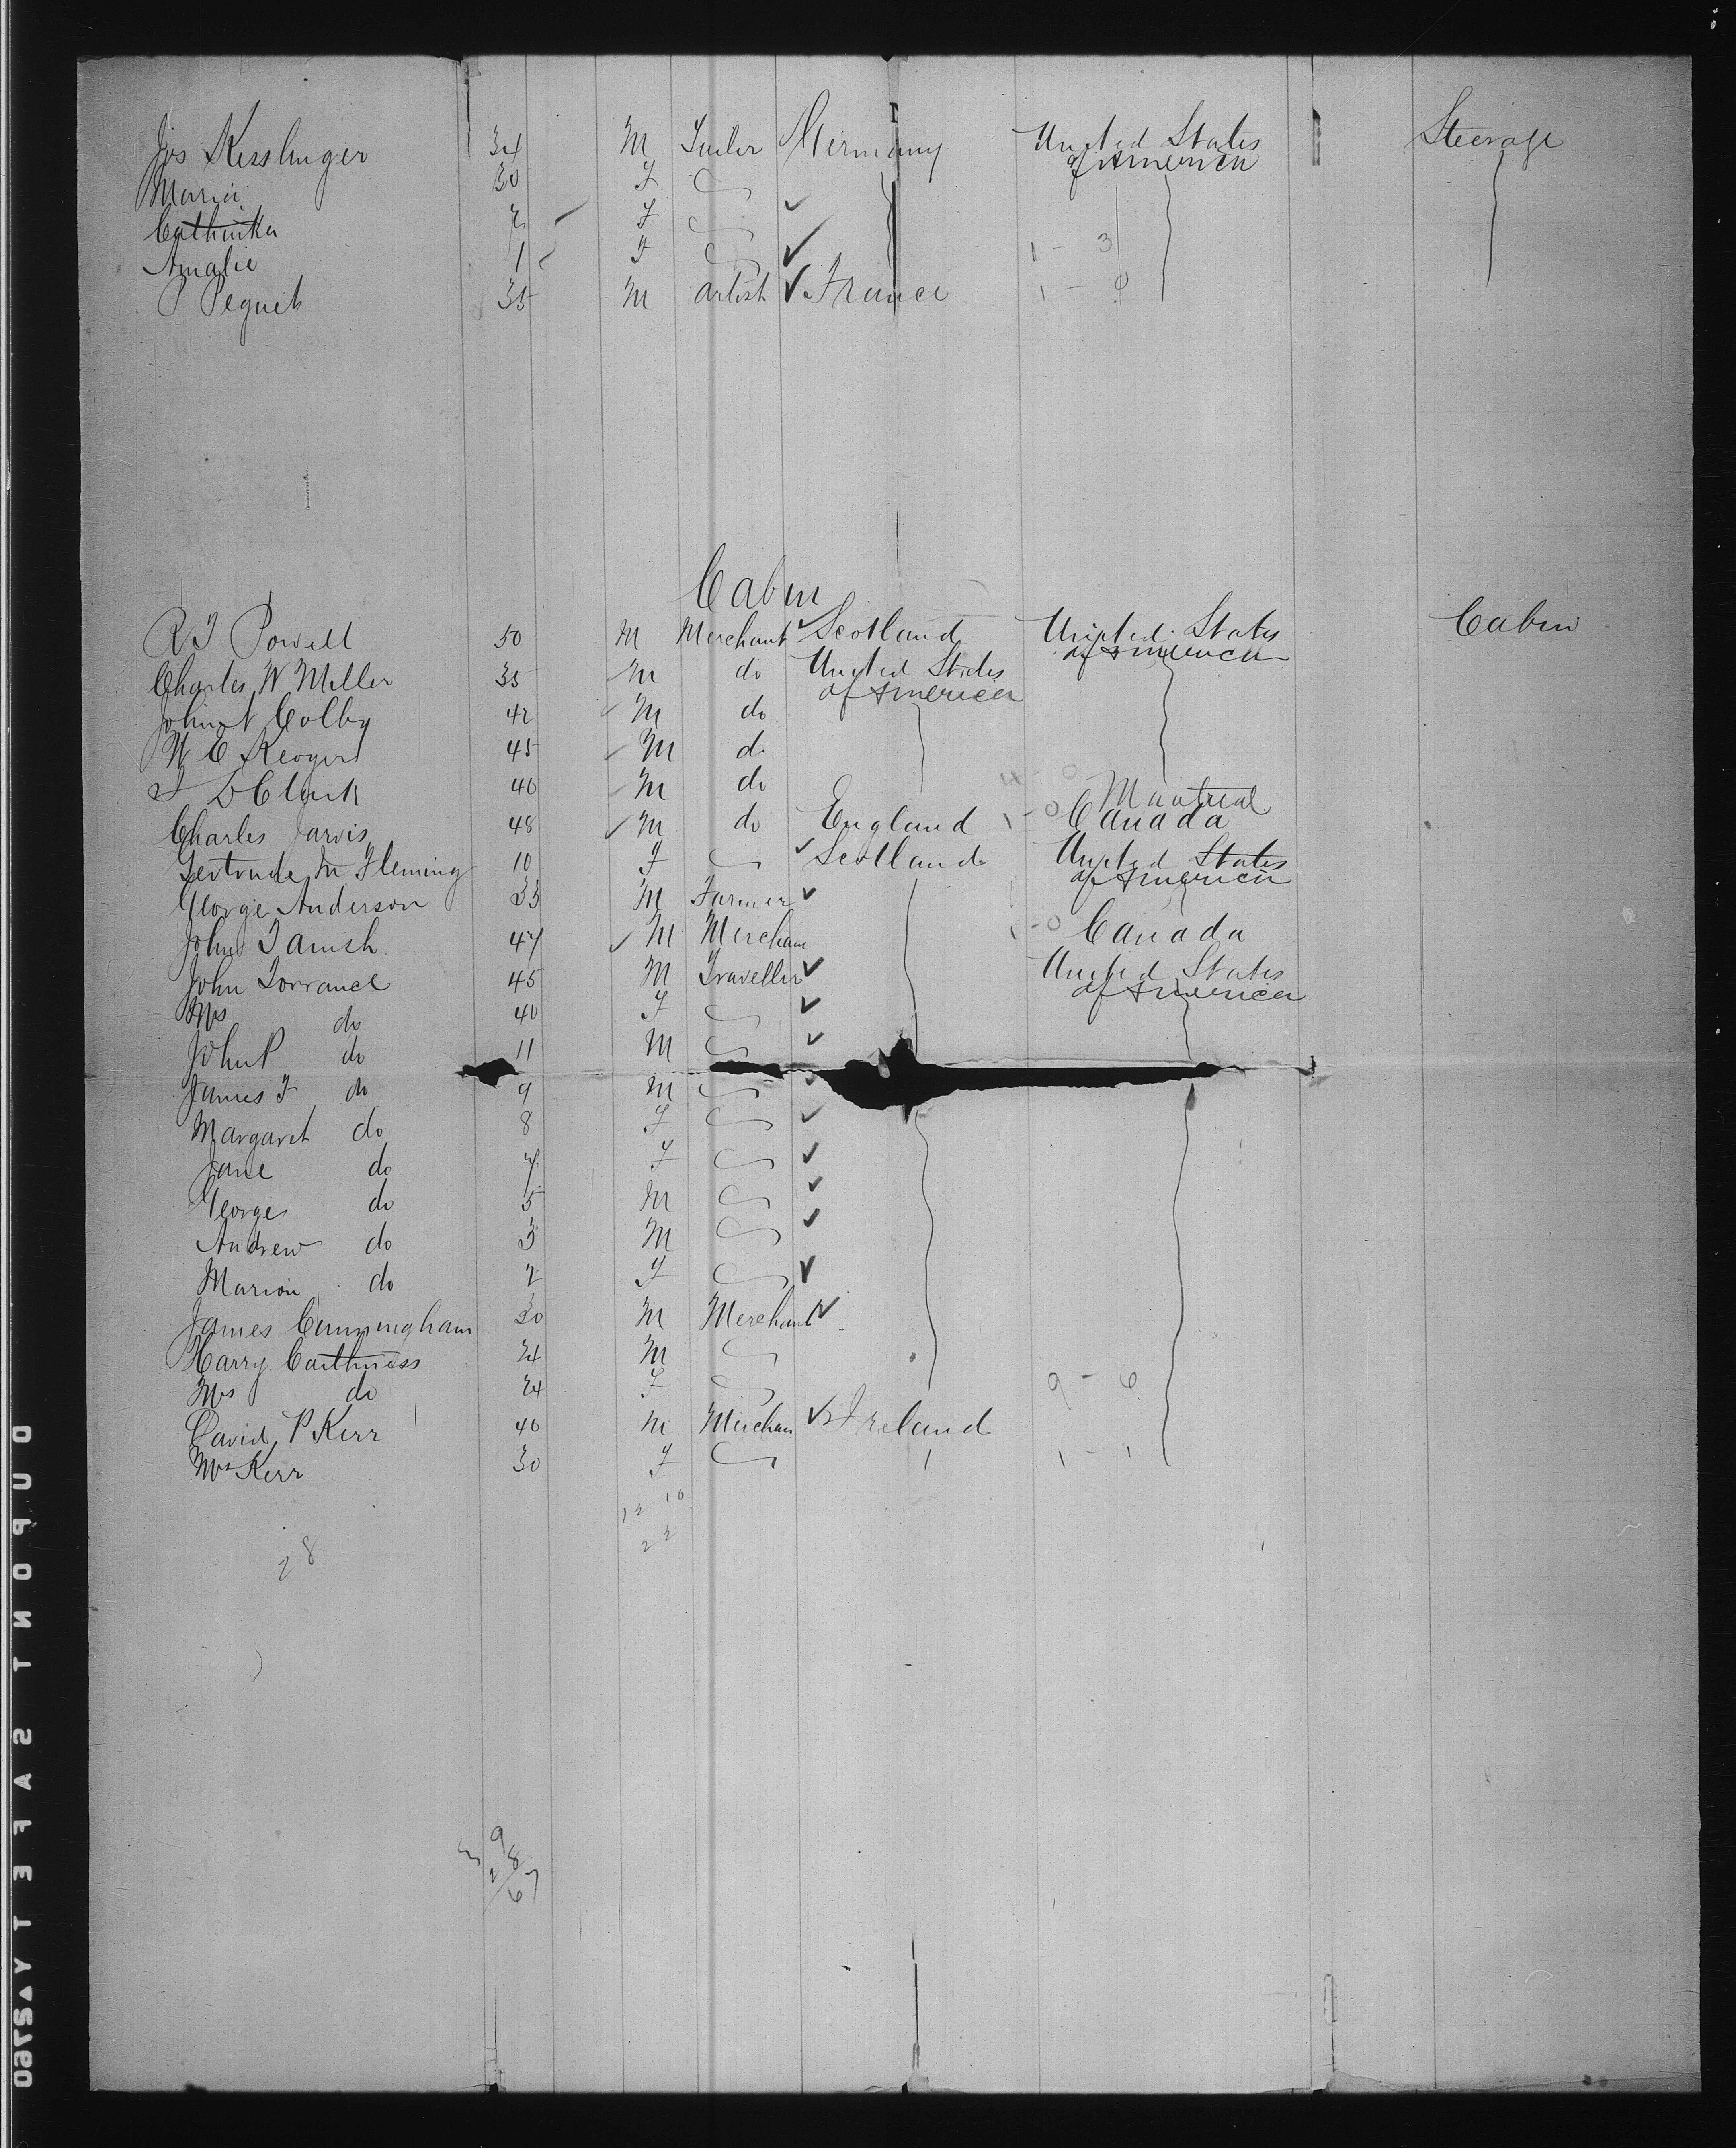 Jos Kesslinger 34 M Tailor Germany United States of America Steerage
Maria 30 F
Cathinka F
Amalie 1 F 1 - 3
P Pequit 35 M Artist France 1 - 0
Cabin
R T Powell 50 M Merchant Scotland United States of America Cabin
Charles W Miller 35 M do United States of America
John N Colby 42 M do
W C Keoger 45 M do
D Clark 40 M do 4 - 0
Charles Jarvis 48 M do England 1 - 0 Montreal Canada
Gertrude M Fleming 10 F Scotland United States of America
George Anderson 33 M Farmer
John Tanish 47 M Merchan 1 - 0 Canada
John Torrance 45 M Traveller United States of America
Mrs do 40 F
John P do 11 M
James F do 9 M
Margaret do 8 F
Jane do 7 F
George do 5 M
Andrew do 3 M
Marion do 2 F
James Cunningham 30 M Merchant
Harry Caithness 24 M
Mrs do 24 F 9 - 6
David P Kerr 40 M Merchan Ireland
Mrs Kerr 30 F 1 - 1
12 10
22
28
DUPONT SAFETY